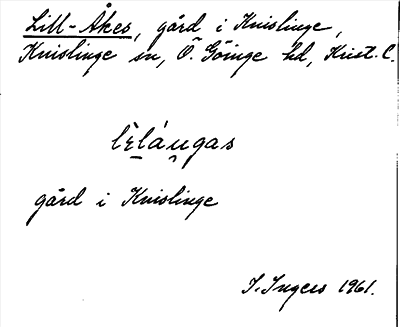 Lill-Åkes, gård i Knislinge,
Knislinge sn, Ö. Göinge hd, Krist. C.
gård i Knislinge
I. Ingers 1961.